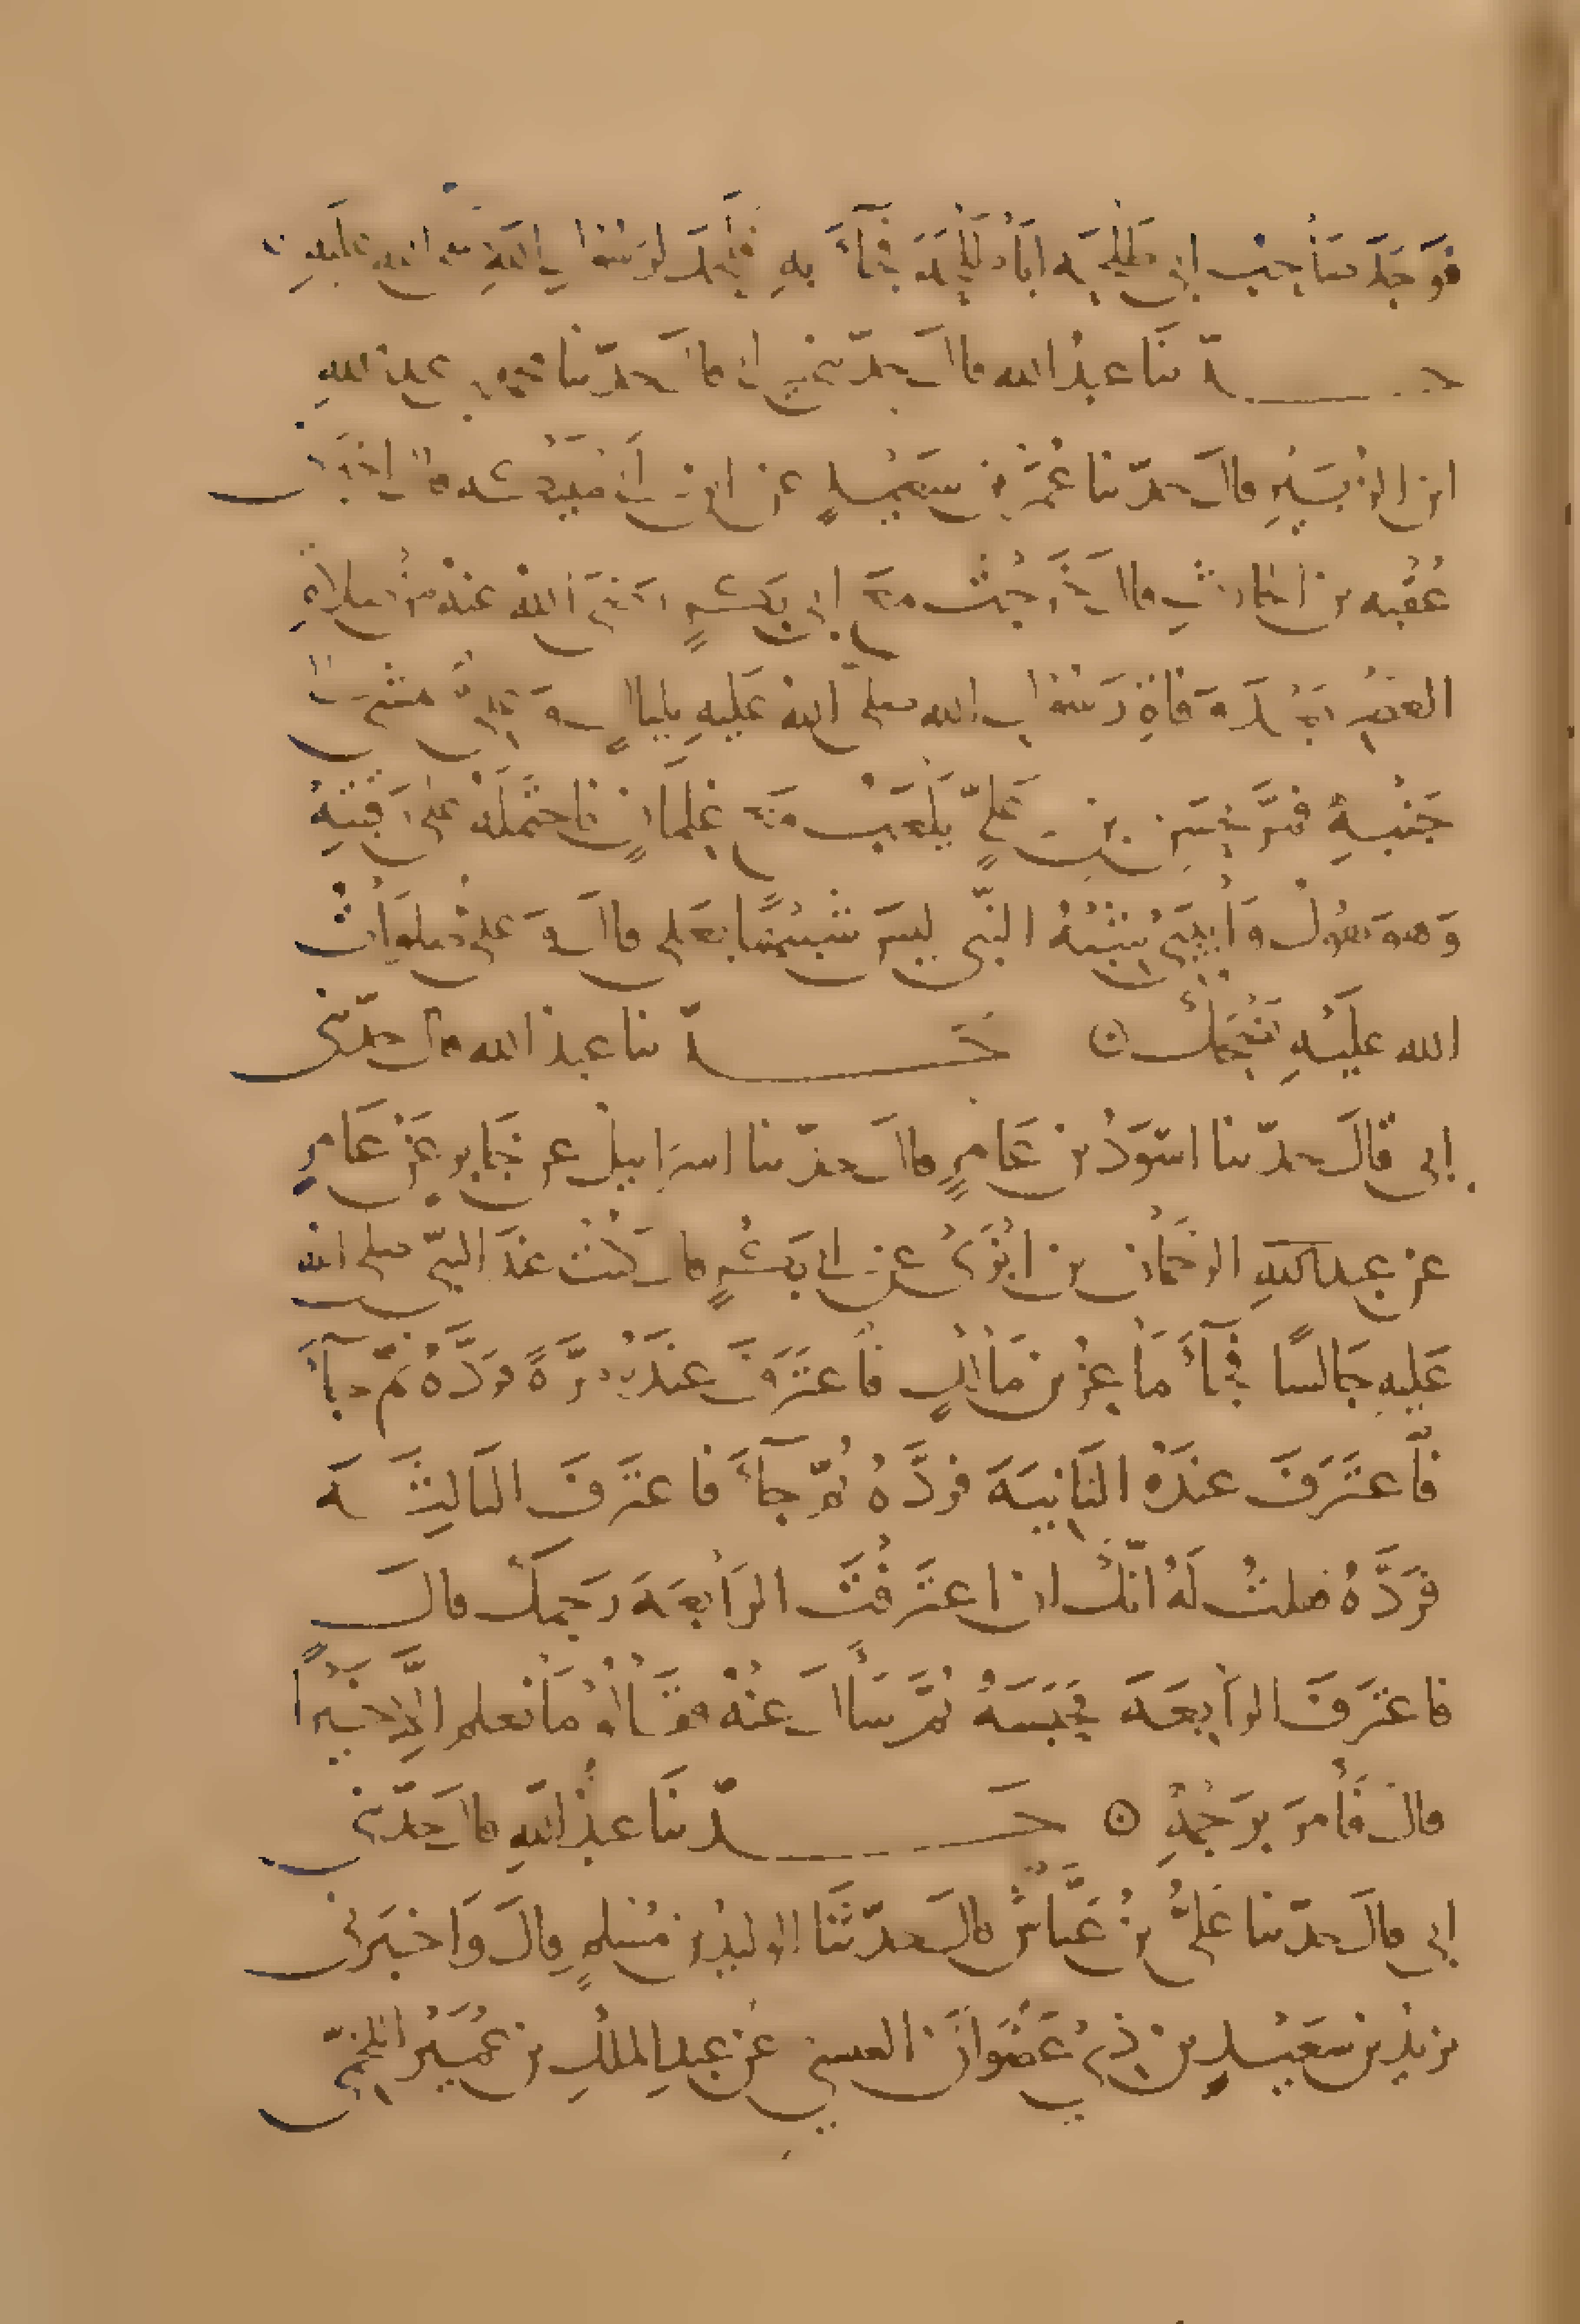 فَوَجَدَ صَاحِبُ ابي طَلْحَةَ ابَا طَلْحَةَ فجَآءَ بِهِ فَلَحَدَ لِرَسُولِ اللهِ صلى الله عليهِ
حدّثنَا عبدُ الله قال حدّثني ابي قال حدّثنا محمد بن عبد اللهِ
ابن الزُبَيرِ قال حدّثنا عُمَر بن سَعِيدٍ عن ابن ابي مُلَيكَة قال اخبَرَني
عُقْبه بن الحارثِ قال خَرَجْتُ مَعَ ابي بَكْرٍ رَضيَ اللهُ عنهُ من صلاةِ
العَصْرِ بَعْدَ وَفاةِ رَسُولِ الله صلى اللهُ عَلَيهِ بليالٍ وَعليٌّ يمشي الى
جَنْبهِ فمَرَّ بحَسَن بن عَليٍّ يَلْعَبُ مَعَ غِلمَانٍ فاحتَمَلَهُ على رَقبَتِهِ
وَهو يقولُ وَا بِأبي شِبْهُ النّبي ليسَ شَبِيهًا بعَلي قال وَعلي صلوَاتُ
الله عليْهِ يَضْحَكُ ○ حَدّثنا عبدُ الله قال حدّثني
ابي قالَ حدّثنا اسْوَدُ بن عَامرٍ قال حدّثنا اسرَايلُ عن جَابر عَنْ عَامرٍ
عن عبد الرحمَان بن ابْزَى عن ابي بَكْرٍ قال كُنْتُ عندَ النبيّ صلى الله
عَليهِ جَالسًا فجآءَ مَاعِزُ بن مَالكٍ فاعتَرَفَ عندَهُ مرَّةً فرَدَّهُ ثمّ جآءَ
فاعتَرَفَ عندَهُ الثانيَةَ فردَّهُ ثمّ جآءَ فاعتَرَفَ الثالِثَةَ
فرَدَّهُ فقلتُ لَهُ انّكَ ان اعتَرَفْتَ الرَابعَةَ رَجمكَ قالَ
فاعتَرَفَ الرابعَةَ فحَبَسَهُ ثمَّ سَألَ عنْهُ فقَالُوا مَا نعلم الَّا خَيْرًا
قال فَأمرَ برَجْمِهِ ○ حَدّثنَا عبدُ اللهِ قال حدّثني
ابي قالَ حدّثنا عَليُّ بنُ عَيَّاشٍ قالَ حدّثَنَا الوليدُ بن مُسْلمٍ قالَ وَاخبَرَني
يزيدُ بن سَعيْدِ بن ذي عَصْوَانَ العنسي عَن عبدِ الملكِ بن عُمَيْر اللخميّ